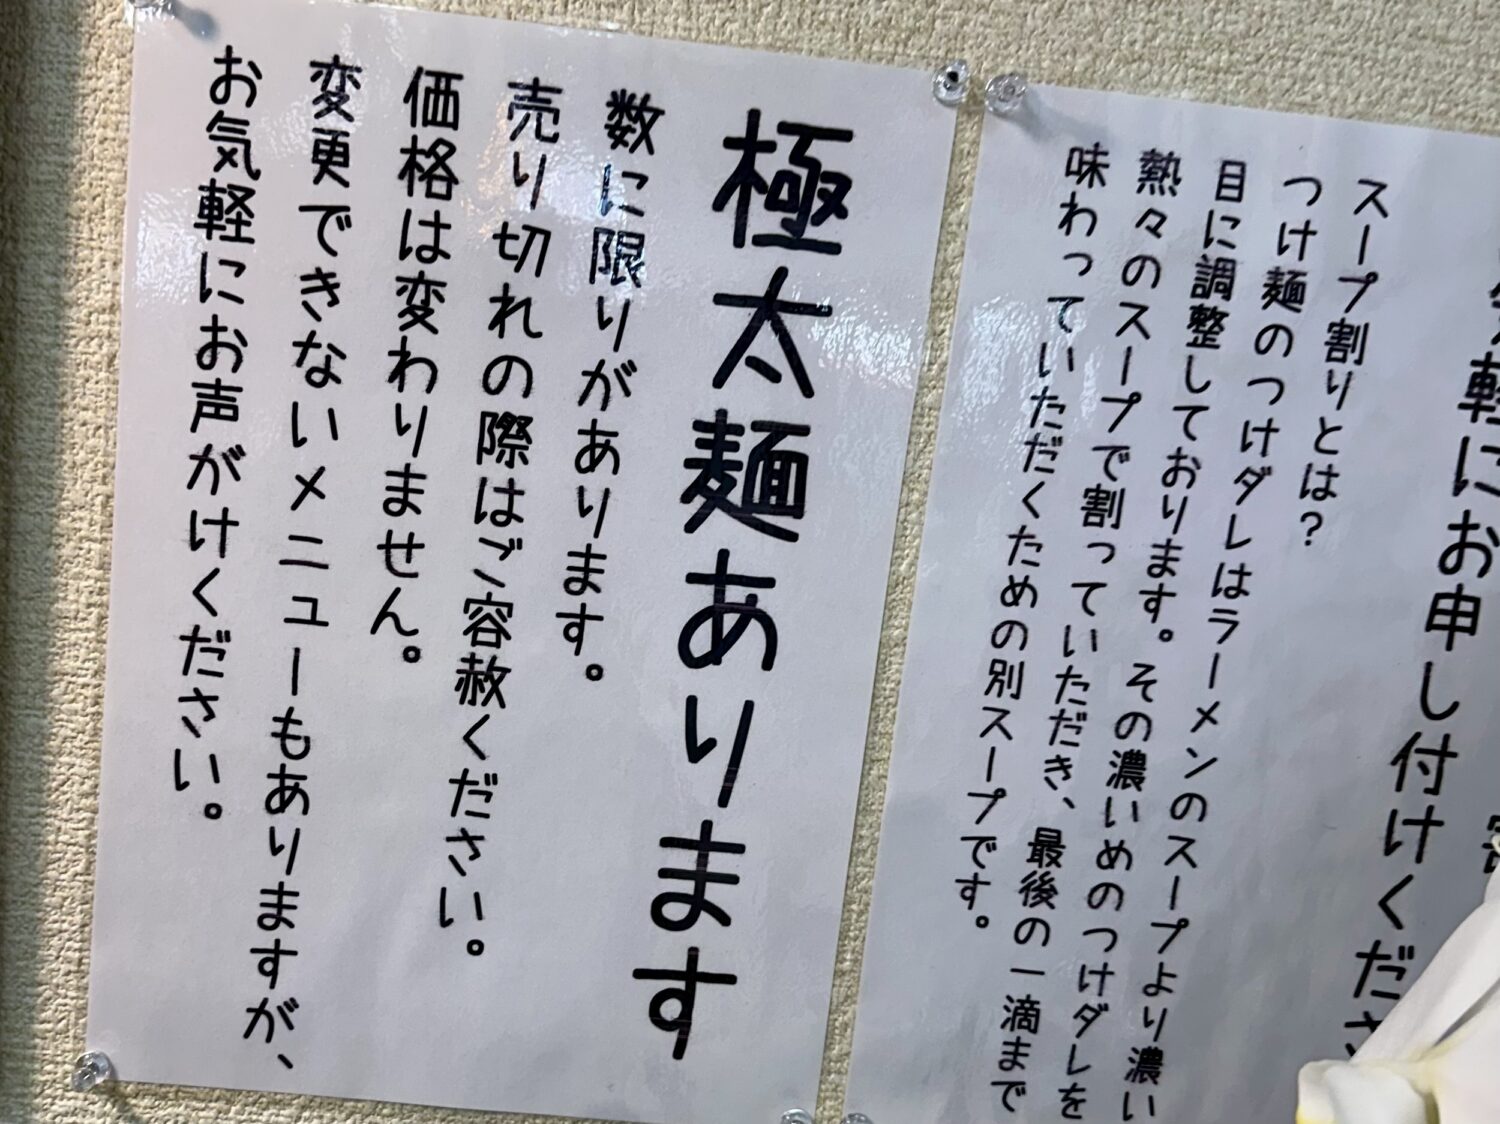 軽にお申し付けくださ
スープ割りとは?
つけ麺のつけダレはラーメンのスープより濃い
目に調整しております。その濃いめのつけダレを
熱々のスープで割っていただき、最後の一滴まで
味わっていただくための別スープです。
極太麺あります
数に限りがあります。
売り切れの際はご容赦ください。
価格は変わりません。
変更できないメニューもありますが、
お気軽にお声がけください。